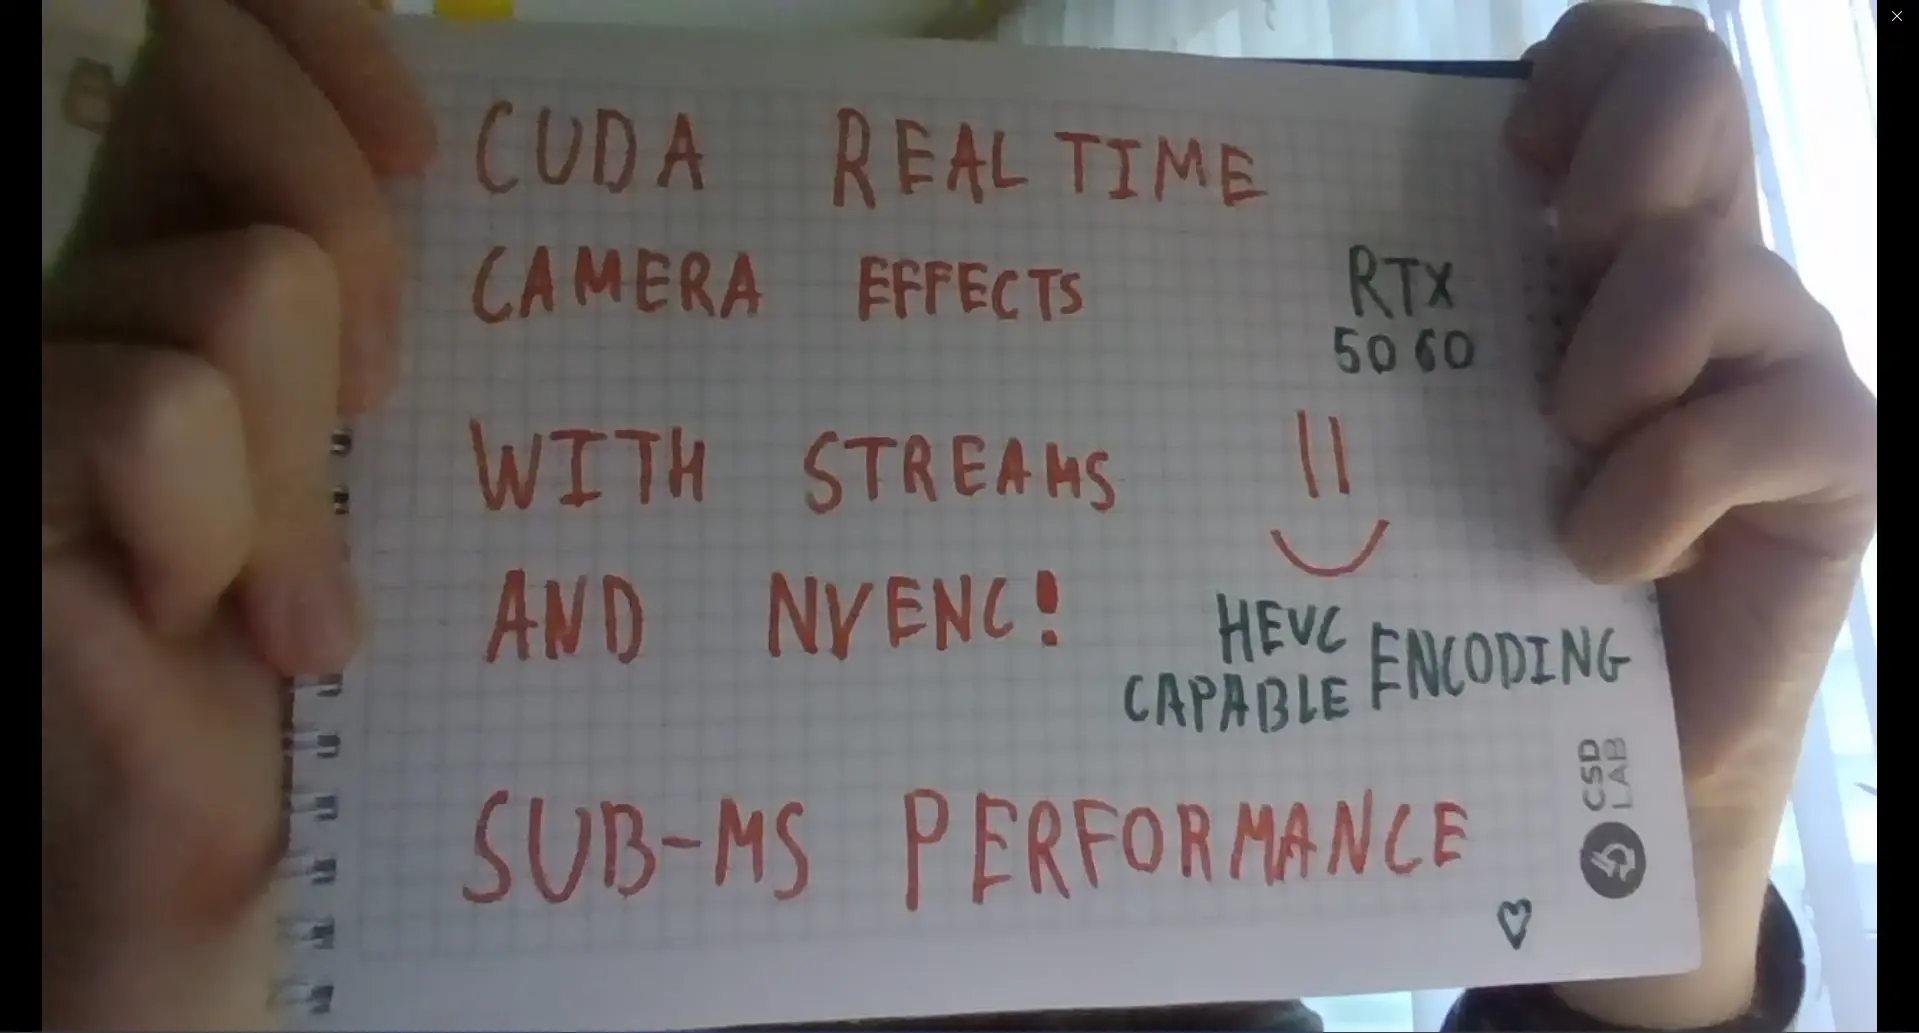 CUDA REALTIME
CAMERA EFFECTS
RTX
5060
WITH STREAMS
AND NVENC!
HEVC
CAPABLE ENCODING
SUB-MS PERFORMANCE
CSD
LAB